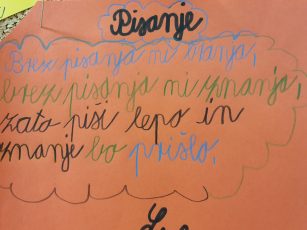 Pisanje
Brez pisanja ni branja,
brez pisanja ni znanja,
zato piši lepo in
znanje bo prišlo.